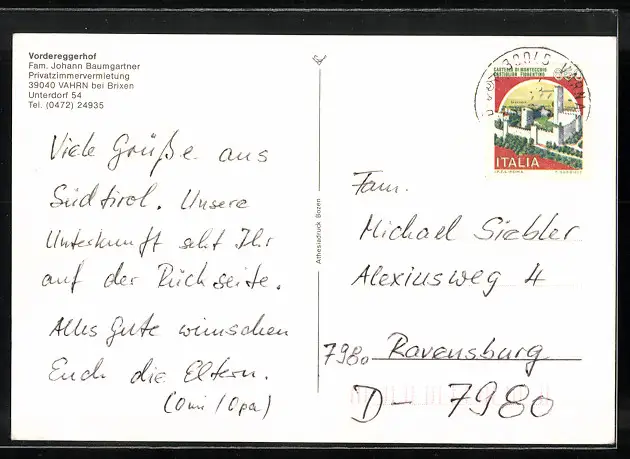 Vordereggerhof
Fam. Johann Baumgartner
Privatzimmervermietung
39040 VAHRN bei Brixen
Unterdorf 54
Tel. (0472) 24935
Viele Grüße aus
Südtirol. Unsere
Unterkunft seht Ihr
auf der Rückseite.
Alles Gute wünschen
Euch die Eltern.
(Omi/Opa)
Athesiadruck Bozen
CASTELLO DI MONTECCHIO
CASTIGLION FIORENTINO
ITALIA
VARNA
Fam.
Michael Siebler
Alexiusweg 4
7980 Ravensburg
D- 7980